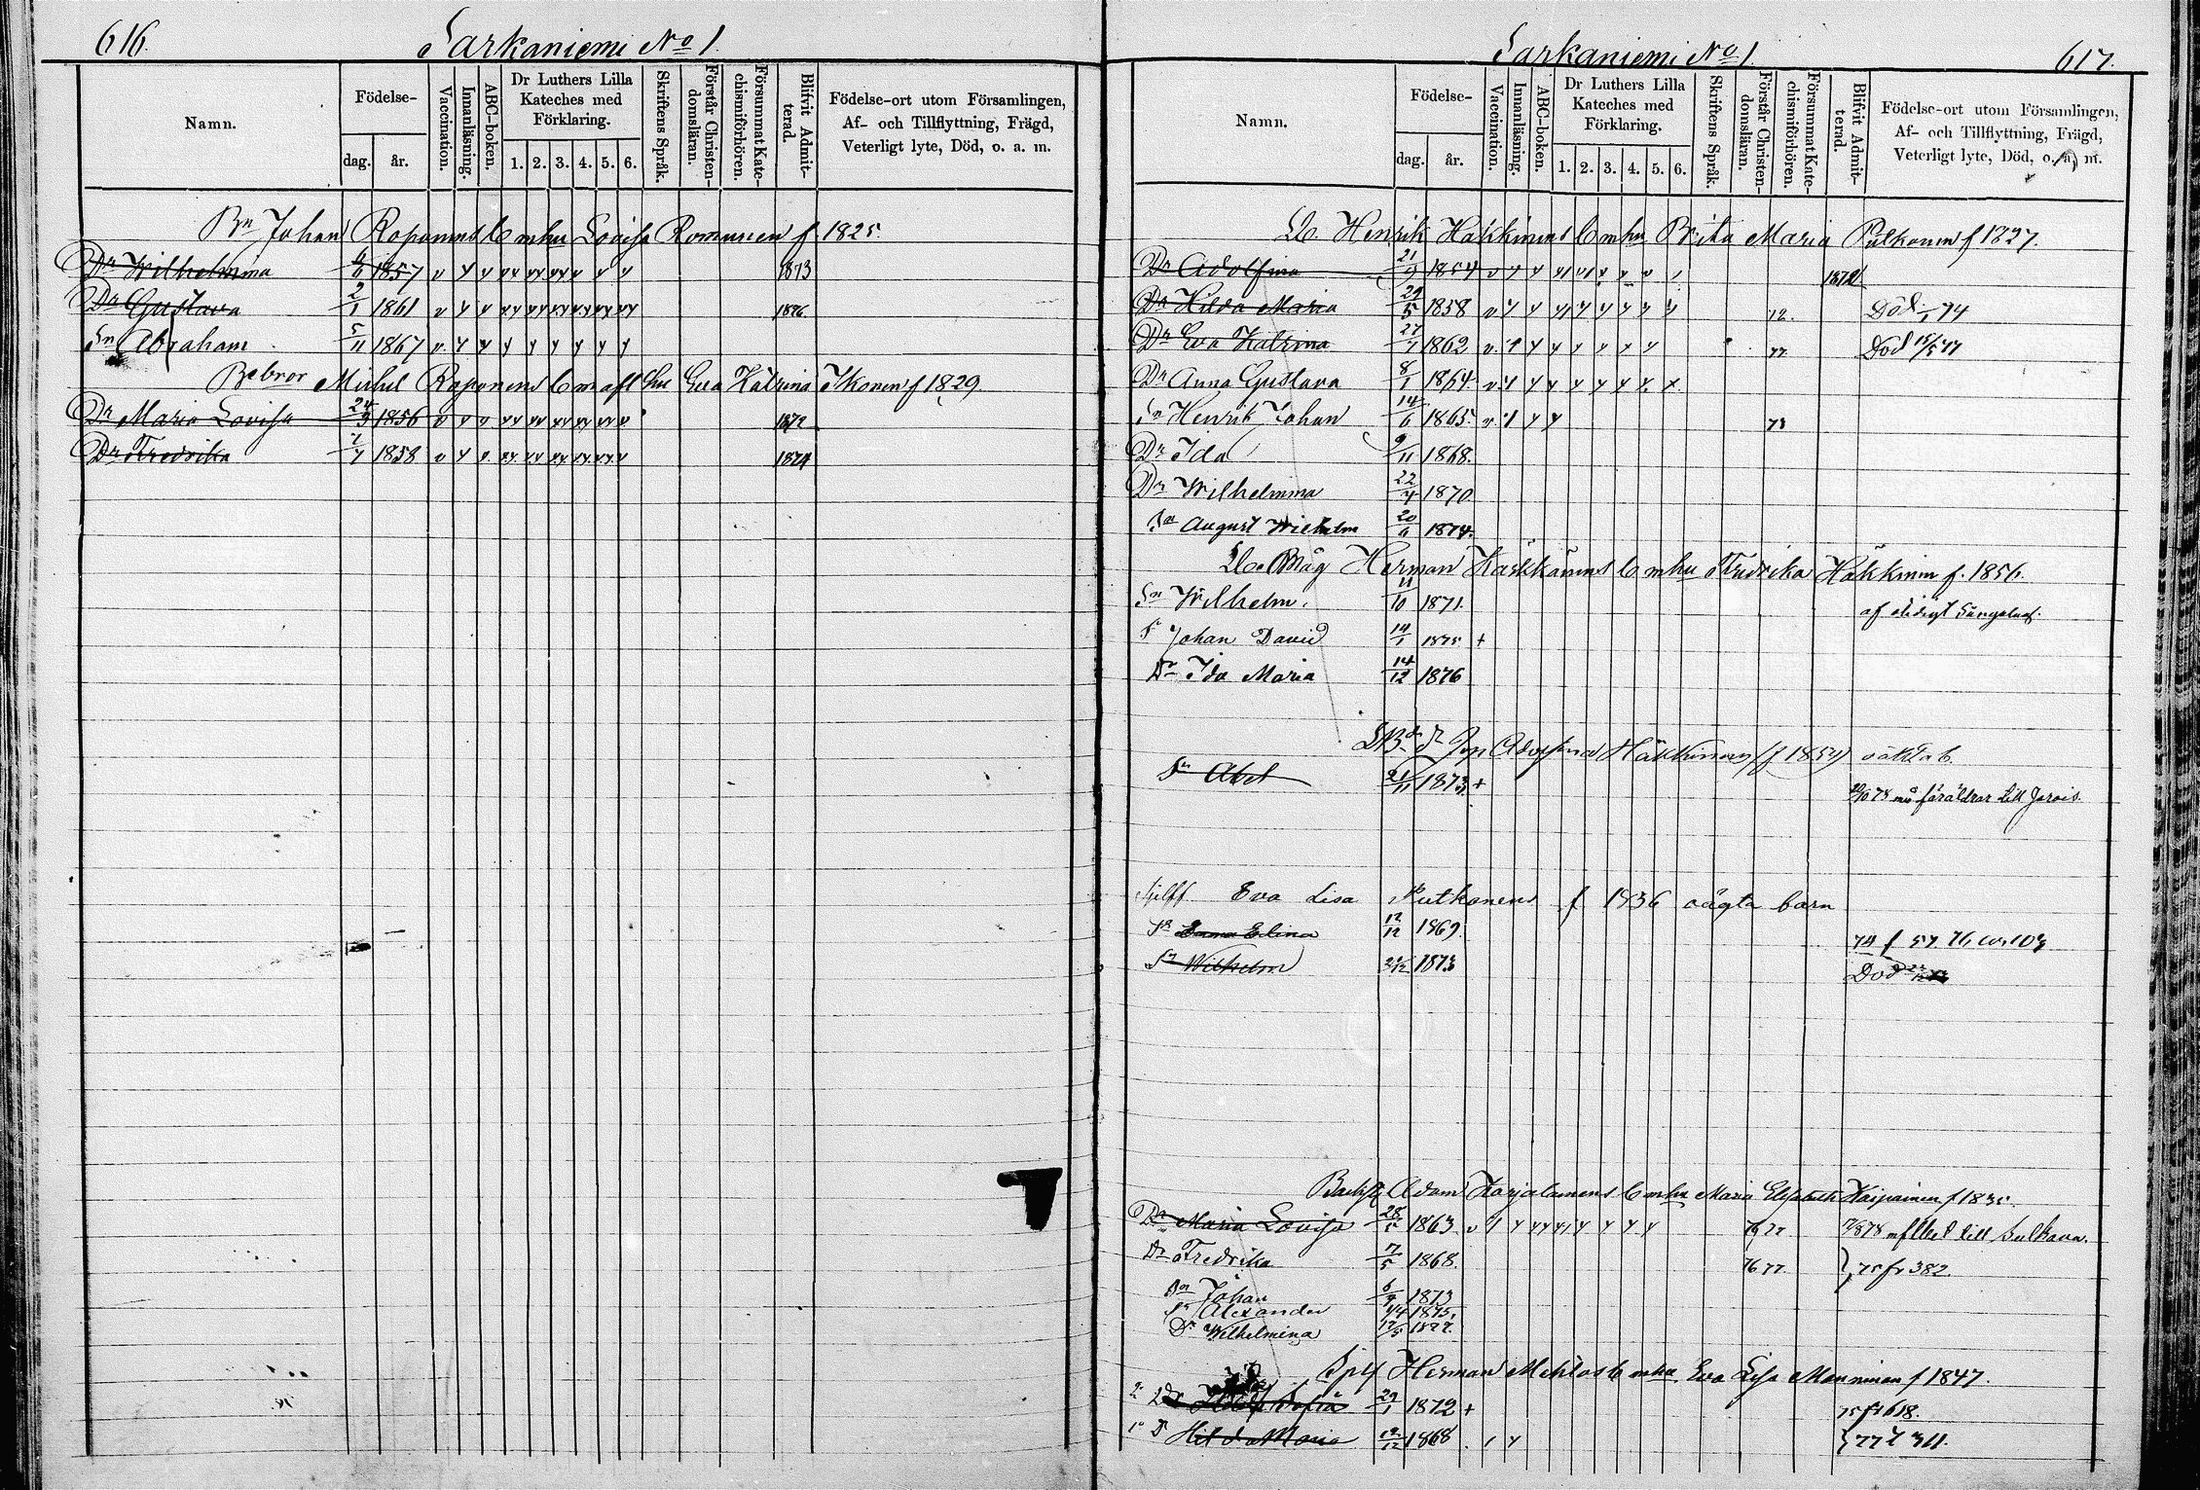 616.
Sarkaniemi No 1.
Namn.
Födelse-
dag.
år.
Vaccination.
Innanläsning.
ABC-boken.
Dr Luthers Lilla Kateches med Förklaring.
1. 2. 3. 4. 5. 6.
Skriftens Språk.
Förstår Christendomsläran.
Försummat Katechismiförhören.
Blifvit Admitterad.
Födelse-ort utom Församlingen,
Af- och Tillflyttning, Frägd,
Veterligt lyte, Död, o. a. m.
Bn Johan Roponens b m hu Lovisa Romunen f 1825.
Dr Wilhelmina 4/6 1857 1873
Dr Gustava 2/1 1861 1876
Sn Abraham 5/11 1867
B bror Michel Roponens b m afl hu Eva Katrina Ikonen f 1829.
Dr Maria Lovisa 24/9 1856 1872
Dr Fredrika 7/7 1858 1874
Sarkaniemi No 1.
617.
Namn.
Födelse-
dag.
år.
Vaccination.
Innanläsning.
ABC-boken.
Dr Luthers Lilla Kateches med Förklaring.
1. 2. 3. 4. 5. 6.
Skriftens Språk.
Förstår Christendomsläran.
Försummat Katechismiförhören.
Blifvit Admitterad.
Födelse-ort utom Församlingen,
Af- och Tillflyttning, Frägd,
Veterligt lyte, Död, o. a. m.
Henrik Häkkinens b m hu Brita Maria Pulkonen f 1827.
Dr Adolfina 21/9 1854
Dr Hilda Maria 29/5 1858 72. Död 74
Dr Eva Katrina 27/7 1862 77 Död 15/5 77
Dr Anna Gustava 8/1 1864
Sn Henrik Johan 14/6 1865
Dr Ida 9/11 1868.
Dr Wilhelmina 22/4 1870
Sn August Wilhelm 20/6 1874.
Måg Herman Härkkänens b m hu Fredrika Häkkinen f. 1856.
Sn Wilhelm. 11/10 1871.
Sn Johan David 14/1 1875 +
Dr Ida Maria 14/12 1876
Adolfina Häkkinens (f 1854) oäkta b.
Sn Abel 21/11 1873 +
föräldrar till Jorois.
Eva Lisa Putkonens f 1836 oägta barn
Emma Elina 12/12 1869.
Sn Wilhelm 21/2 1873 Död
Adam Karjalainens b m hu Maria Elisabeth Haipainen f 1835.
Dr Maria Lovisa 28/5 1863. 76 77 till Sulkava.
Dr Fredrika 7/5 1868. 76 77. 75 fr 382.
Sn Johan 6/9 1873
Sn Alexander 1875.
Dr Wilhelmina 1877.
Herman Mehtos b m hu Eva Lisa Manninen f 1847.
Sofia 29/1 1872 + 75 fr 618.
Hilda Maria 1868. 77 t 311.